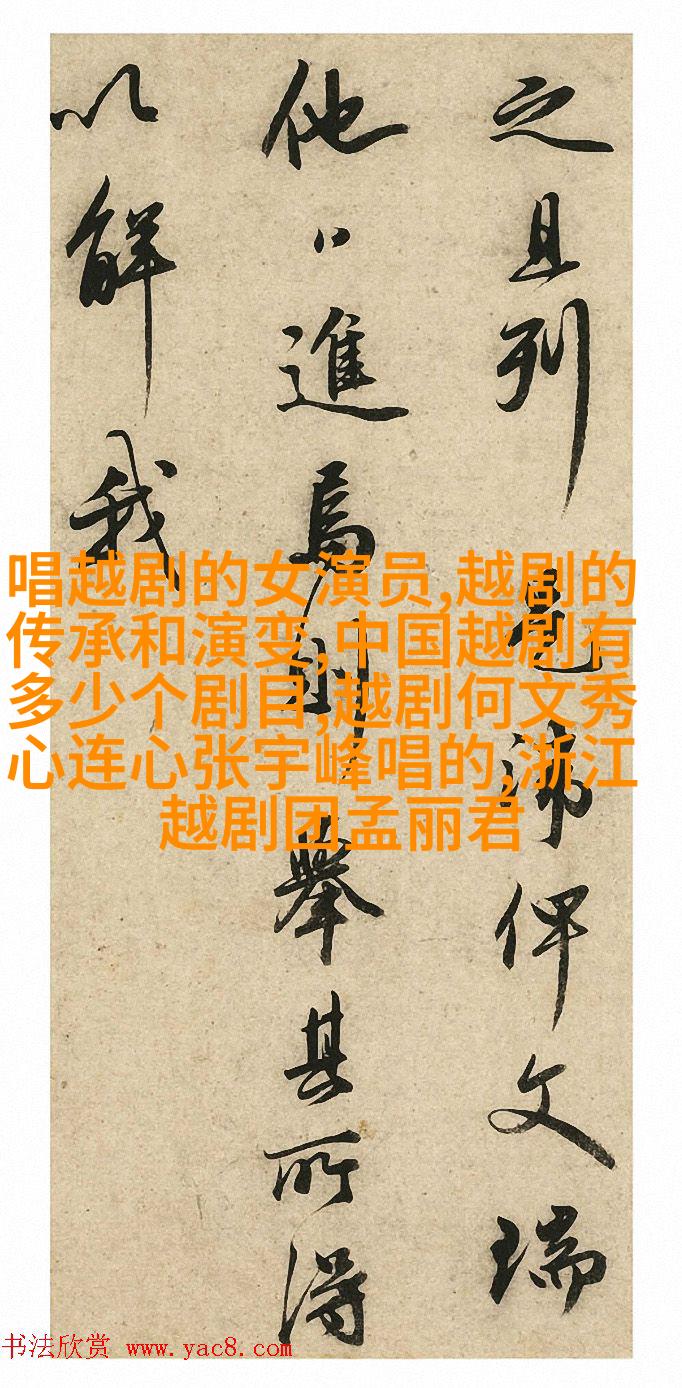 之且列俾文瑞
他〻進為則舉其所得
以解我
唱越剧的女演员,越剧的
传承和演变,中国越剧有
多少个剧目,越剧何文秀
心连心张宇峰唱的,浙江
越剧团孟丽君
书法欣赏 www.yac8.com